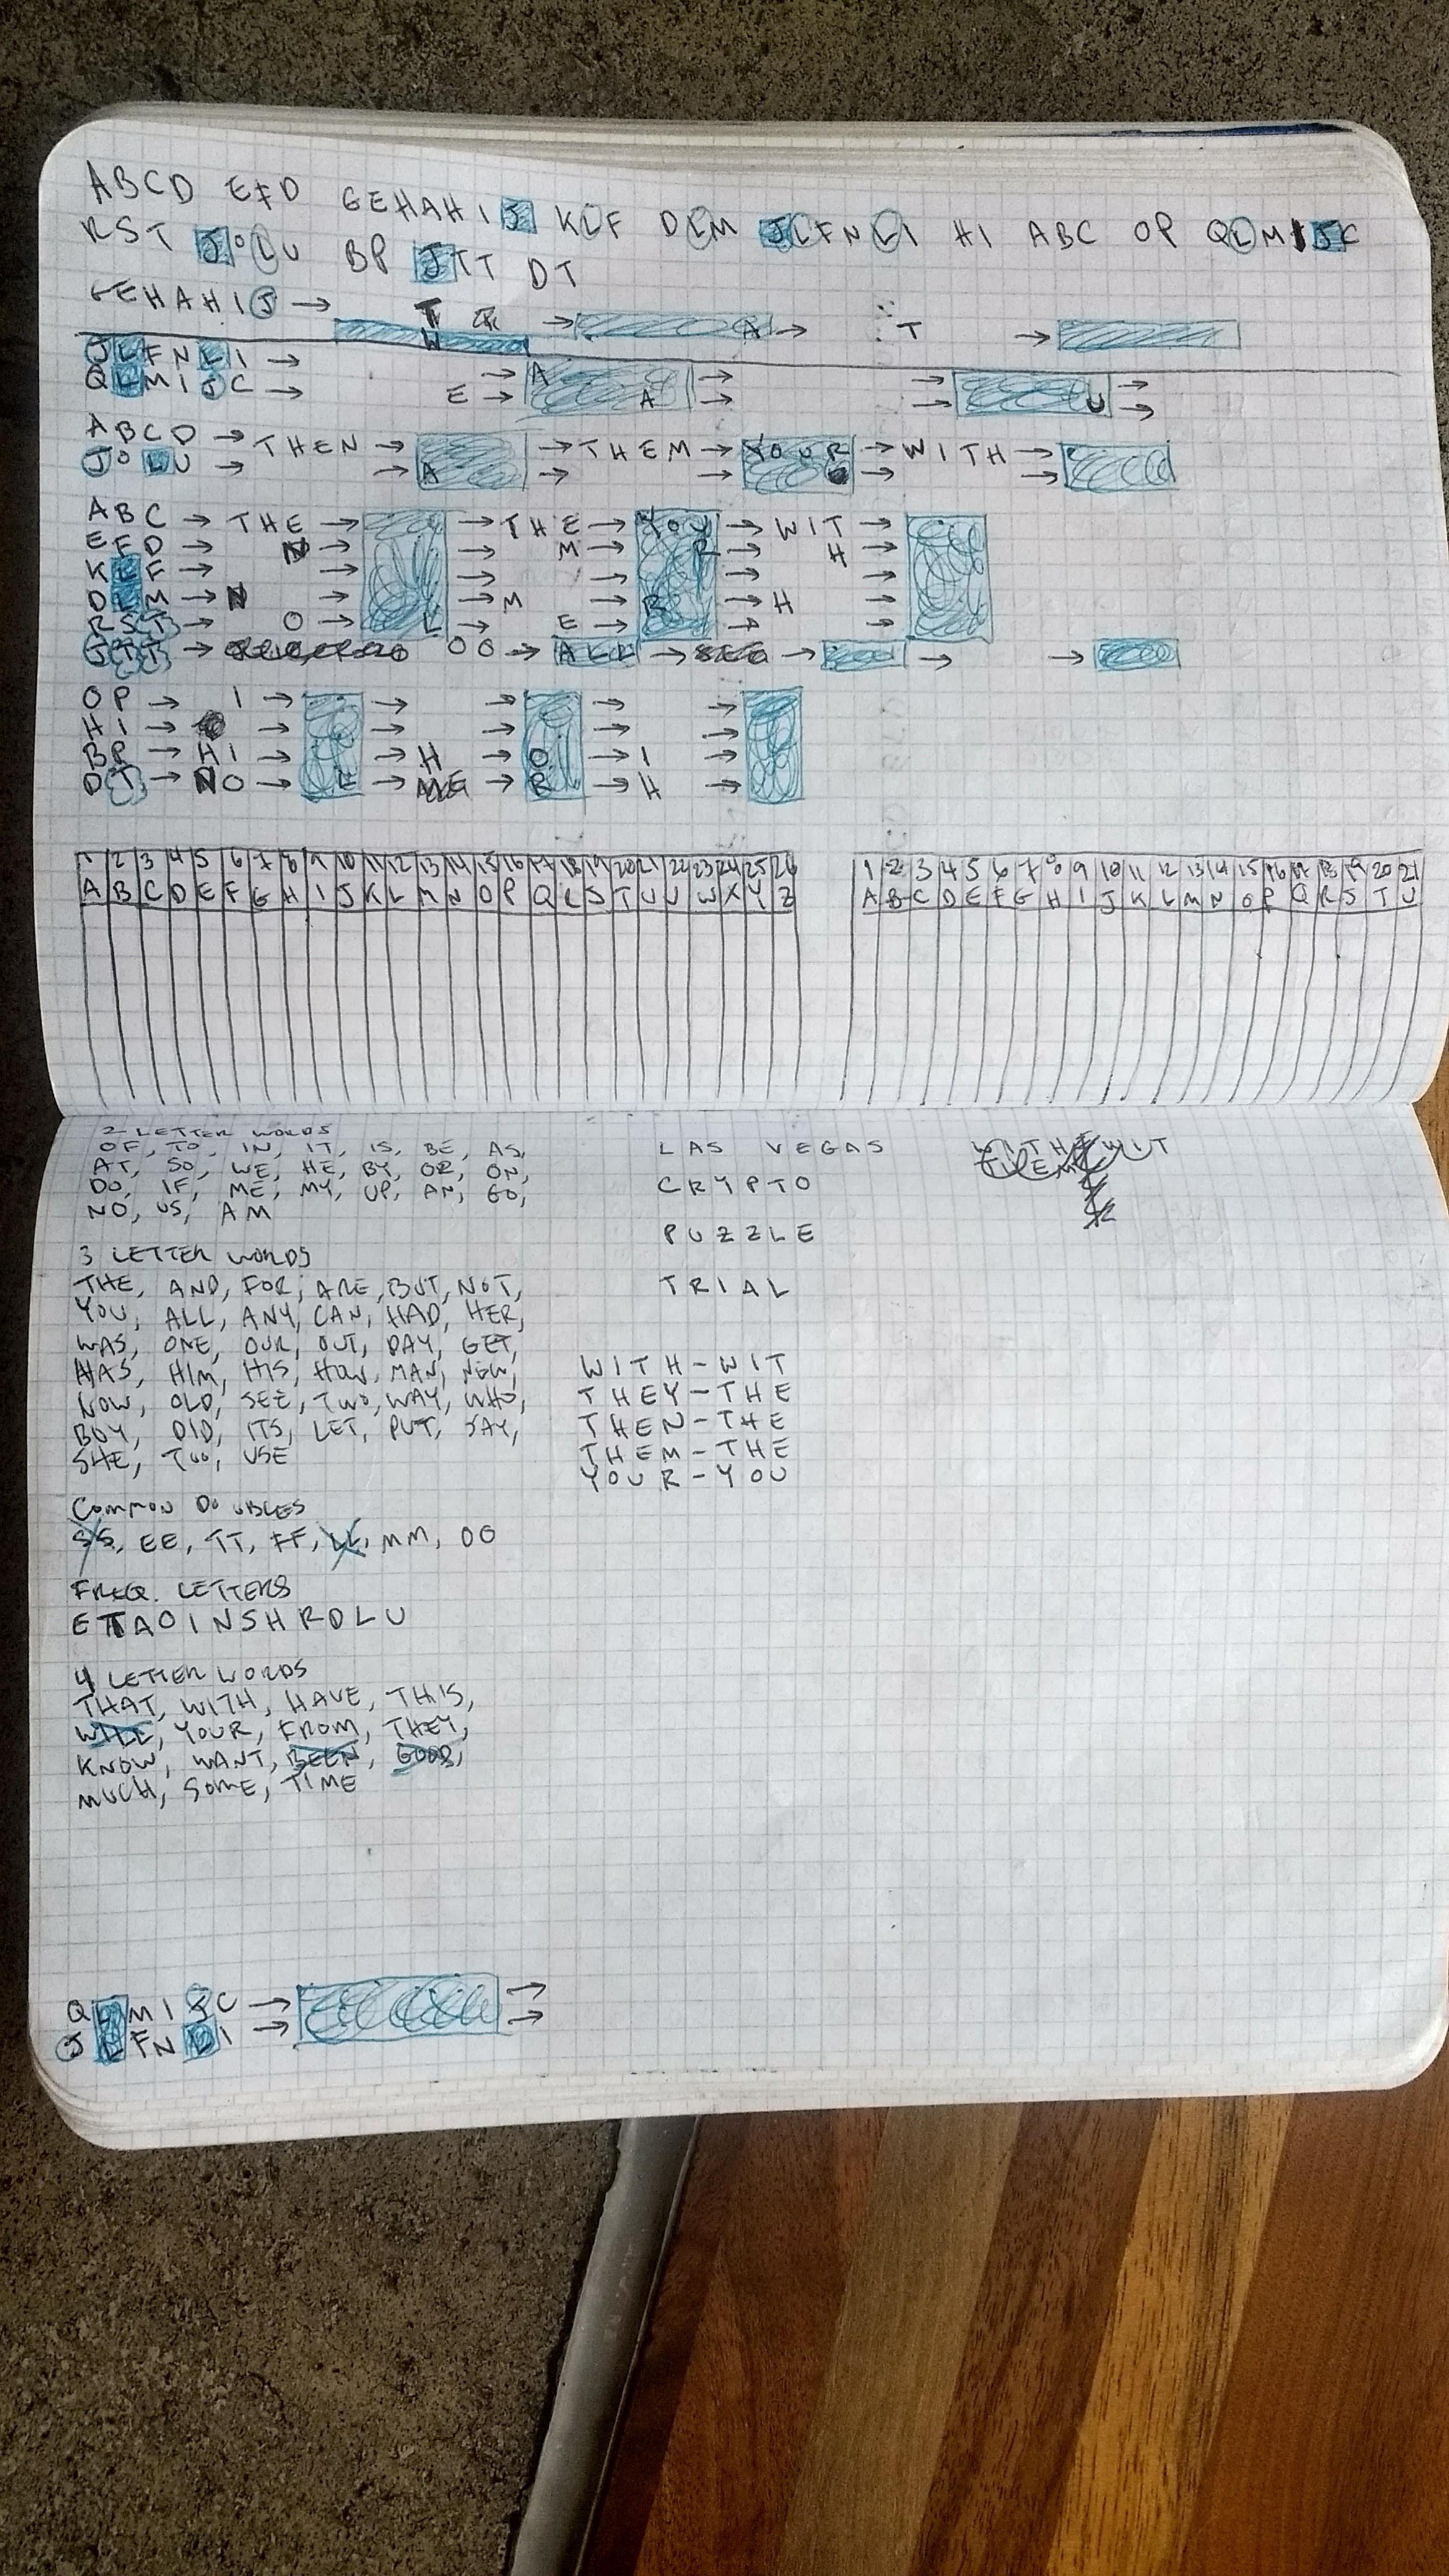 ABCD EFD GEHAHIJ KLF DLM JLFNLI HI ABC OP QLMIJC
RST JOLU BP JTT DT
GEHAHIJ → T → A → T →
W
JLFNLI → → A → →
QLMIJC → E → A → → U →
ABCD → THEN → → THEM → YOUR → WITH →
JOLU → → A → → → →
ABC → THE → → THE → YOU → WIT →
EFD → N → → M → R → H →
KLF → → → → → →
DLM → N → → M → R → H →
RST → O → L → E → → →
JTT → OO → ALL → → → →
OP → I → → → → →
HI → → → → → →
BP → HI → → H → O → I →
DT → NO → L → → R → H →
1 2 3 4 5 6 7 8 9 10 11 12 13 14 15 16 17 18 19 20 21 22 23 24 25 26
A B C D E F G H I J K L M N O P Q L S T U U W X Y Z
1 2 3 4 5 6 7 8 9 10 11 12 13 14 15 16 17 18 19 20 21
A B C D E F G H I J K L M N O P Q R S T U
2 LETTER WORDS
OF, TO, IN, IT, IS, BE, AS,
AT, SO, WE, HE, BY, OR, ON,
DO, IF, ME, MY, UP, AN, GO,
NO, US, AM
3 LETTER WORDS
THE, AND, FOR, ARE, BUT, NOT,
YOU, ALL, ANY, CAN, HAD, HER,
WAS, ONE, OUR, OUT, DAY, GET,
HAS, HIM, HIS, HOW, MAN, NEW,
NOW, OLD, SEE, TWO, WAY, WHO,
BOY, DID, ITS, LET, PUT, SAY,
SHE, TOO, USE
COMMON DOUBLES
SS, EE, TT, FF, LL, MM, OO
FREQ. LETTERS
ETAOINSHRDLU
4 LETTER WORDS
THAT, WITH, HAVE, THIS,
WILL, YOUR, FROM, THEY,
KNOW, WANT, BEEN, GOOD,
MUCH, SOME, TIME
LAS VEGAS
CRYPTO
PUZZLE
TRIAL
WITH-WIT
THEY-THE
THEN-THE
THEM-THE
YOUR-YOU
QLMIJC → →
JLFNLI → →